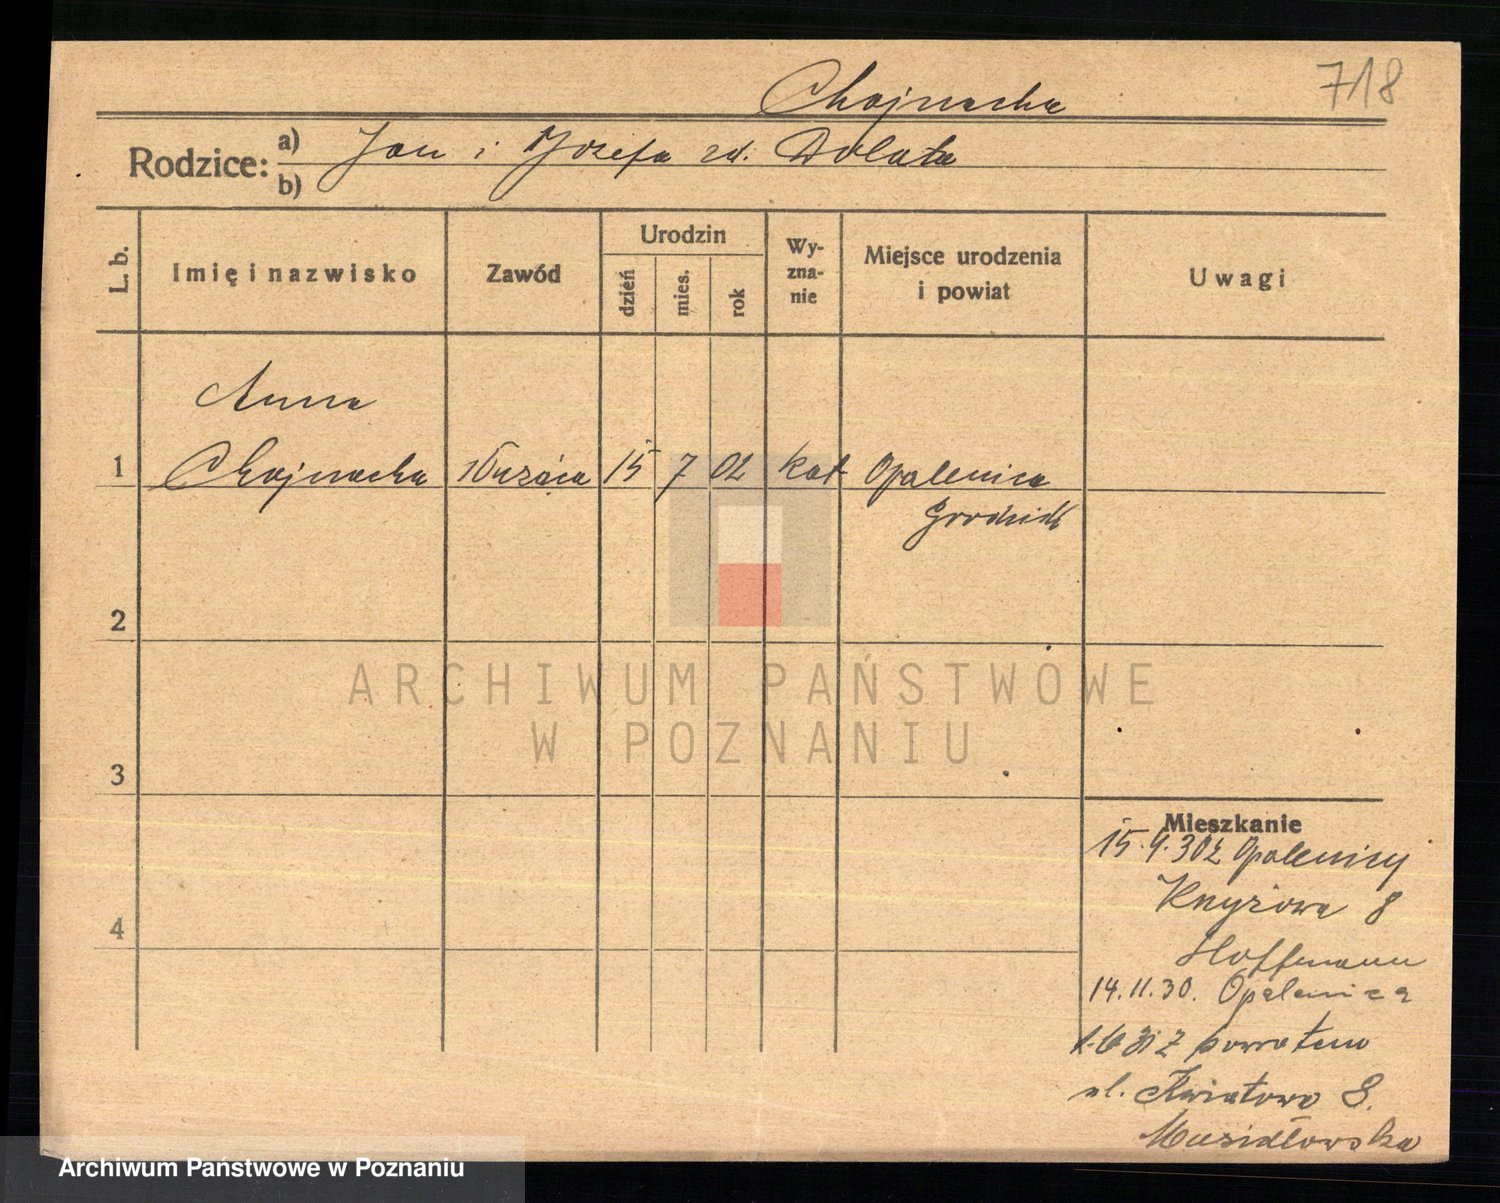 Chojnacka
718
Rodzice: a) Jan i Józefa zd. Dolata
b)
L. b.
Imię i nazwisko
Zawód
Urodzin
dzień
mies.
rok
Wy-
zna-
nie
Miejsce urodzenia
i powiat
Uwagi
Anna
1 Chojnacka służąca 15 7 02 kat Opalenica
Grodzisk
2
3
4
ARCHIWUM PAŃSTWOWE
W POZNANIU
Mieszkanie
15.4.30 z Opalenicy
Knyżowa 8
Hoffmann
14.11.30. Opalenica
1.6 31 z powrotem
ul. Kwiatowa 8.
Musidłowska
Archiwum Państwowe w Poznaniu